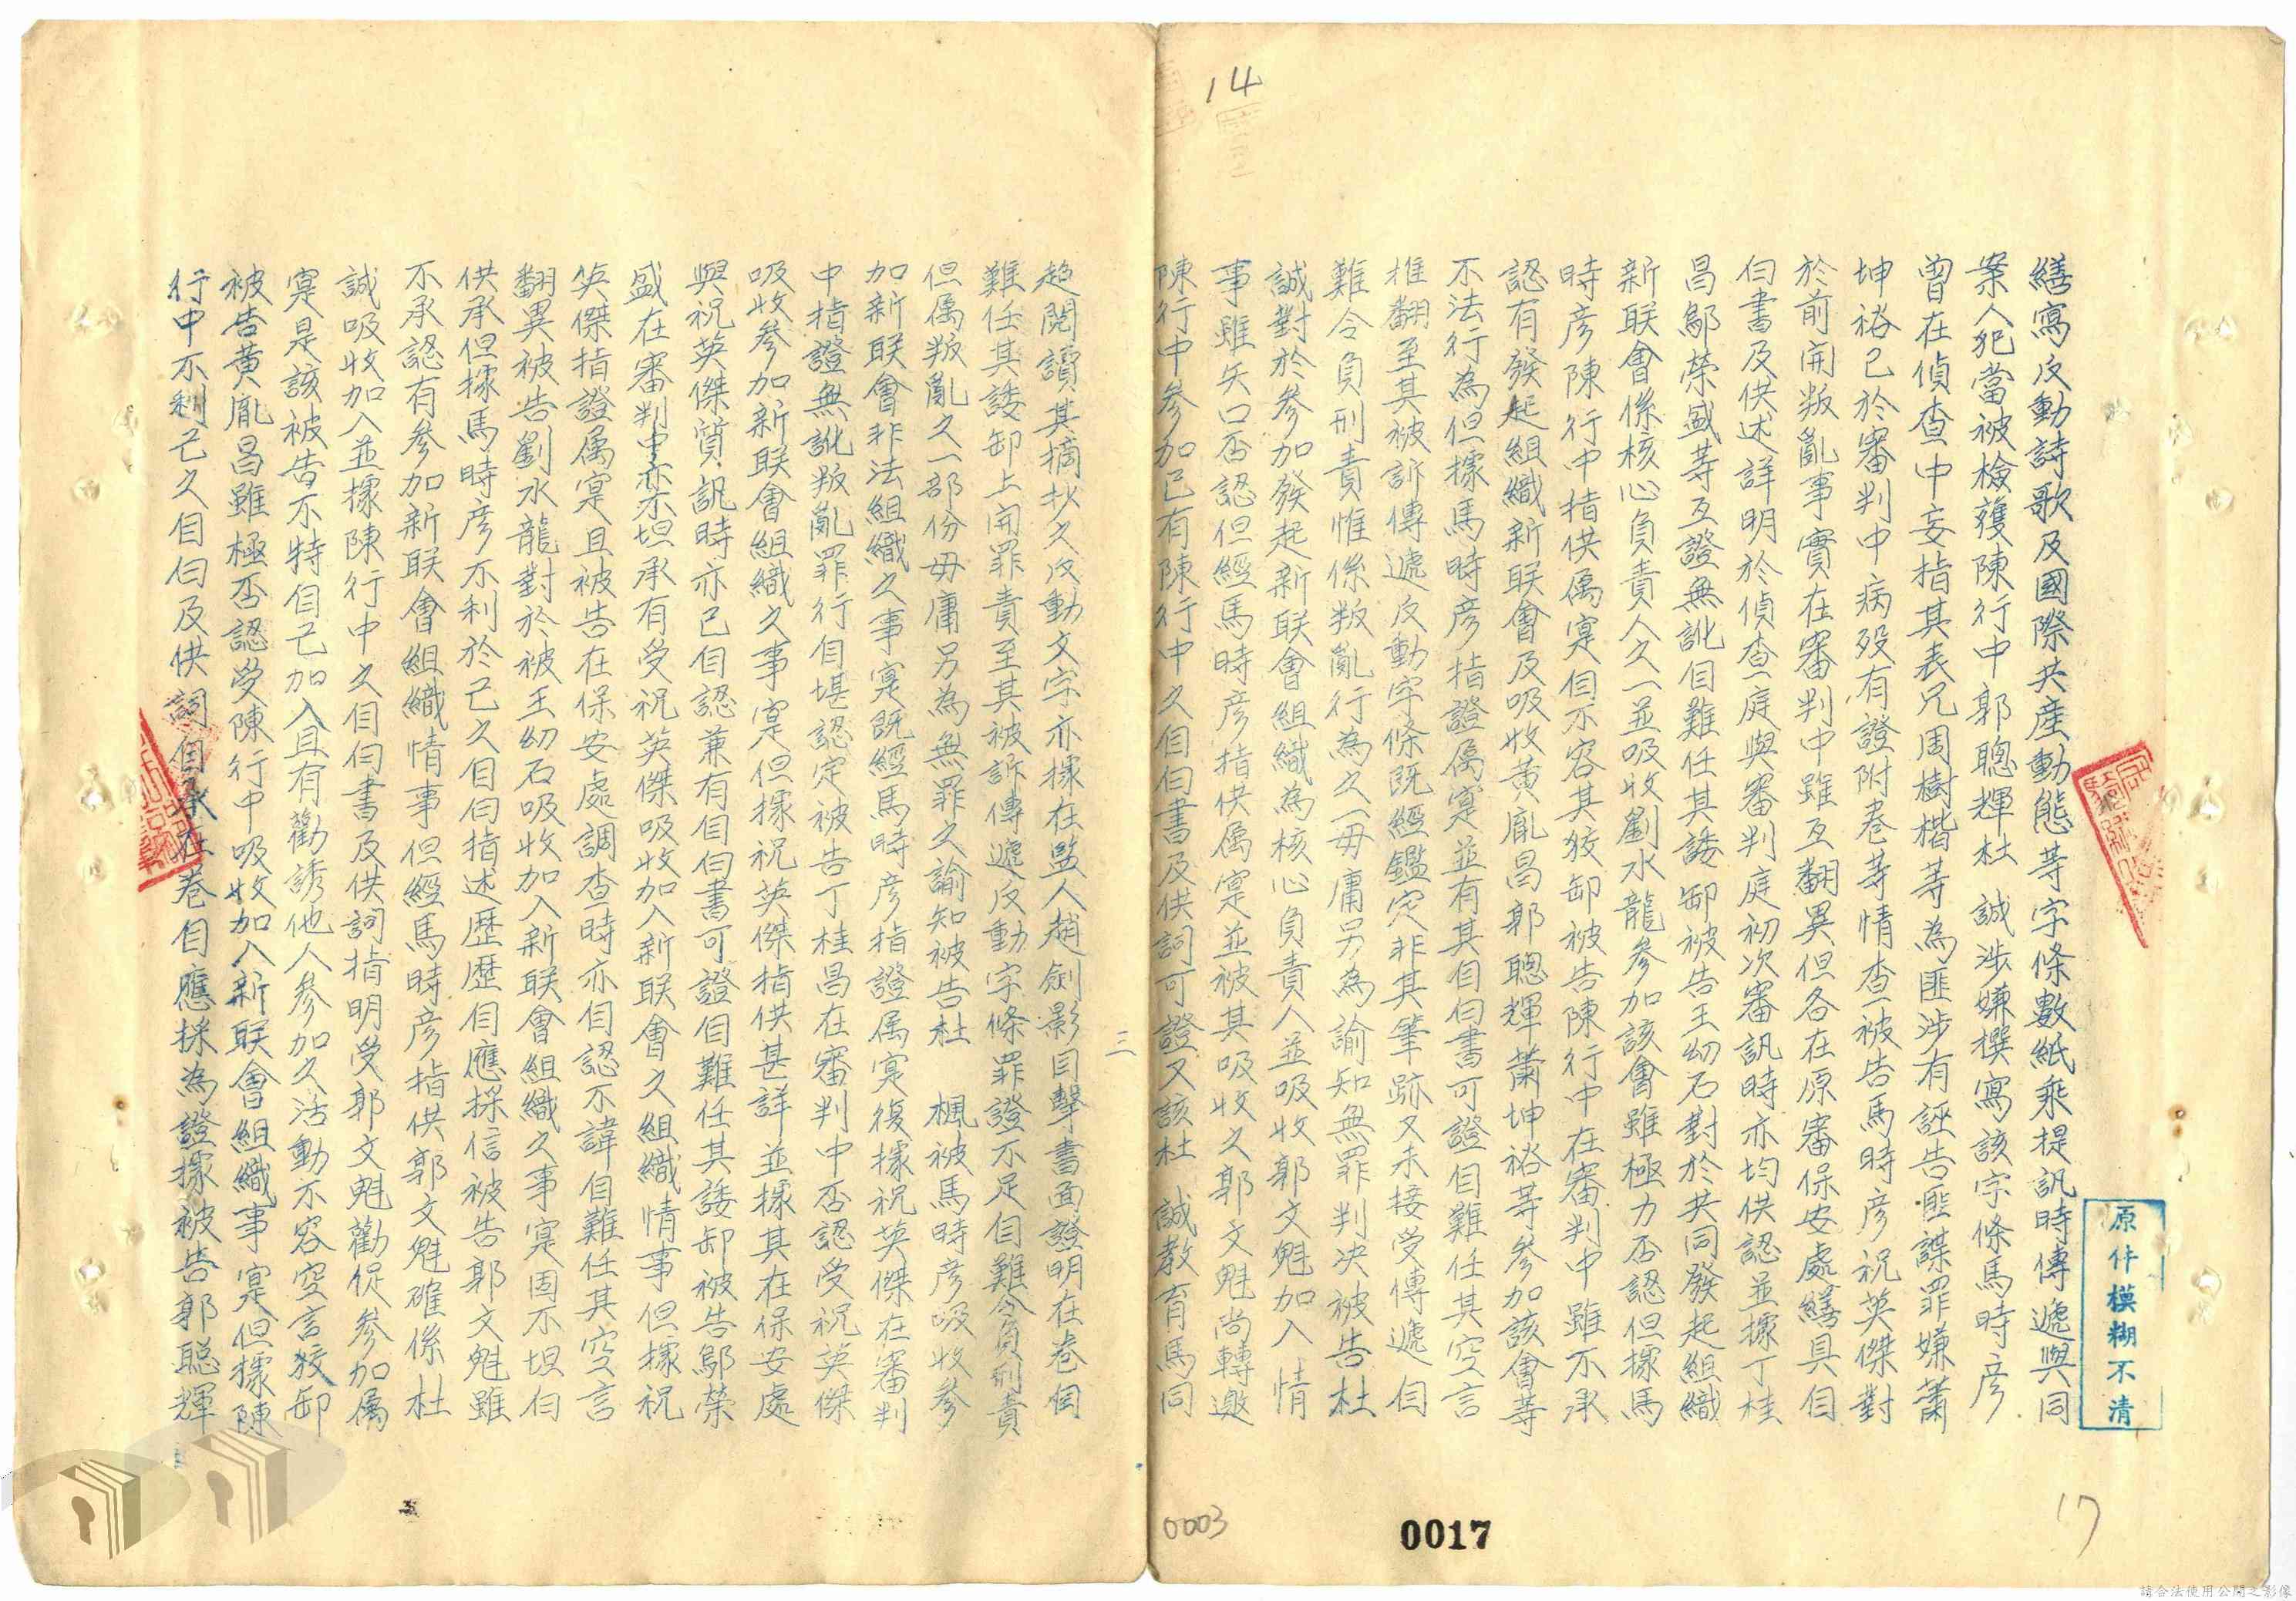 14
原件模糊不清
繕寫反動詩歌及國際共產動態等字條數紙乘提訊時傳遞與同
案人犯當被檢獲陳行中郭聰輝杜　誠涉嫌撰寫該字條馬時彥
曾在偵查中妄指其表兄周樹楷等為匪涉有誣告匪諜罪嫌蕭
坤裕已於審判中病歿有證附卷等情查被告馬時彥祝英傑對
於前開叛亂事實在審判中雖互翻異但各在原審保安處繕具自
白書及供述詳明於偵查庭與審判庭初次審訊時亦均供認並據丁桂
昌鄔榮盛等互證無訛自難任其諉卸被告王幼石對於共同發起組織
新联會係核心負責人之一並吸收劉水龍參加該會雖極力否認但據馬
時彥陳行中指供属寔自不容其狡卸被告陳行中在審判中雖不承
認有發起組織新联會及吸收黃胤昌郭聰輝蕭坤裕等參加該會等
不法行為但據馬時彥指證属寔並有其自白書可證自難任其空言
推翻至其被訴傳遞反動字條既經鑑定非其筆跡又未接受傳遞自
難令負刑責惟係叛亂行為之一毋庸另為諭知無罪判决被告杜
誠對於參加發起新联會組織為核心負責人並吸收郭文魁加入情
事雖矢口否認但經馬時彥指供属寔並被其吸收之郭文魁尚轉邀
陳行中參加已有陳行中之自白書及供詞可證又該杜　誠教育馬同
三
趋閱讀其摘抄之反動文字亦據在監人趙劍影目擊書面證明在卷自
難任其諉卸上開罪責至其被訴傳遞反動字條罪證不足自難令負刑責
但属叛亂之一部份毋庸另為無罪之諭知被告杜　楓被馬時彥吸收參
加新联會非法組織之事寔既經馬時彥指證属寔復據祝英傑在審判
中指證無訛叛亂罪行自堪認定被告丁桂昌在審判中否認受祝英傑
吸收參加新联會組織之事寔但據祝英傑指供甚詳並據其在保安處
與祝英傑質訊時亦已自認兼有自白書可證自難任其諉卸被告鄔榮
盛在審判中亦不坦承有受祝英傑吸收加入新联會之組織情事但據祝
英傑指證属寔且被告在保安處調查時亦自認不諱自難任其空言
翻異被告劉水龍對於被王幼石吸收加入新联會組織之事寔固不坦白
供承但據馬時彥不利於己之自白指述歷歷自應採信被告郭文魁雖
不承認有參加新联會組織情事但經馬時彥指供郭文魁確係杜
誠吸收加入並據陳行中之自白書及供詞指明受郭文魁勸促參加属
寔是該被告不特自己加入且有勸誘他人參加之活動不容空言狡卸
被告黃胤昌雖極否認受陳行中吸收加入新联會組織事寔但據陳
行中不利己之自白及供詞自承在卷自應採為證據被告郭聰輝
0003
0017
17
請合法使用公開之影像